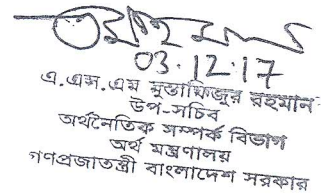 03.12.17
এ.এস.এম মুস্তাফিজুর রহমান
উপ-সচিব
অর্থনৈতিক সম্পর্ক বিভাগ
অর্থ মন্ত্রণালয়
গণপ্রজাতন্ত্রী বাংলাদেশ সরকার